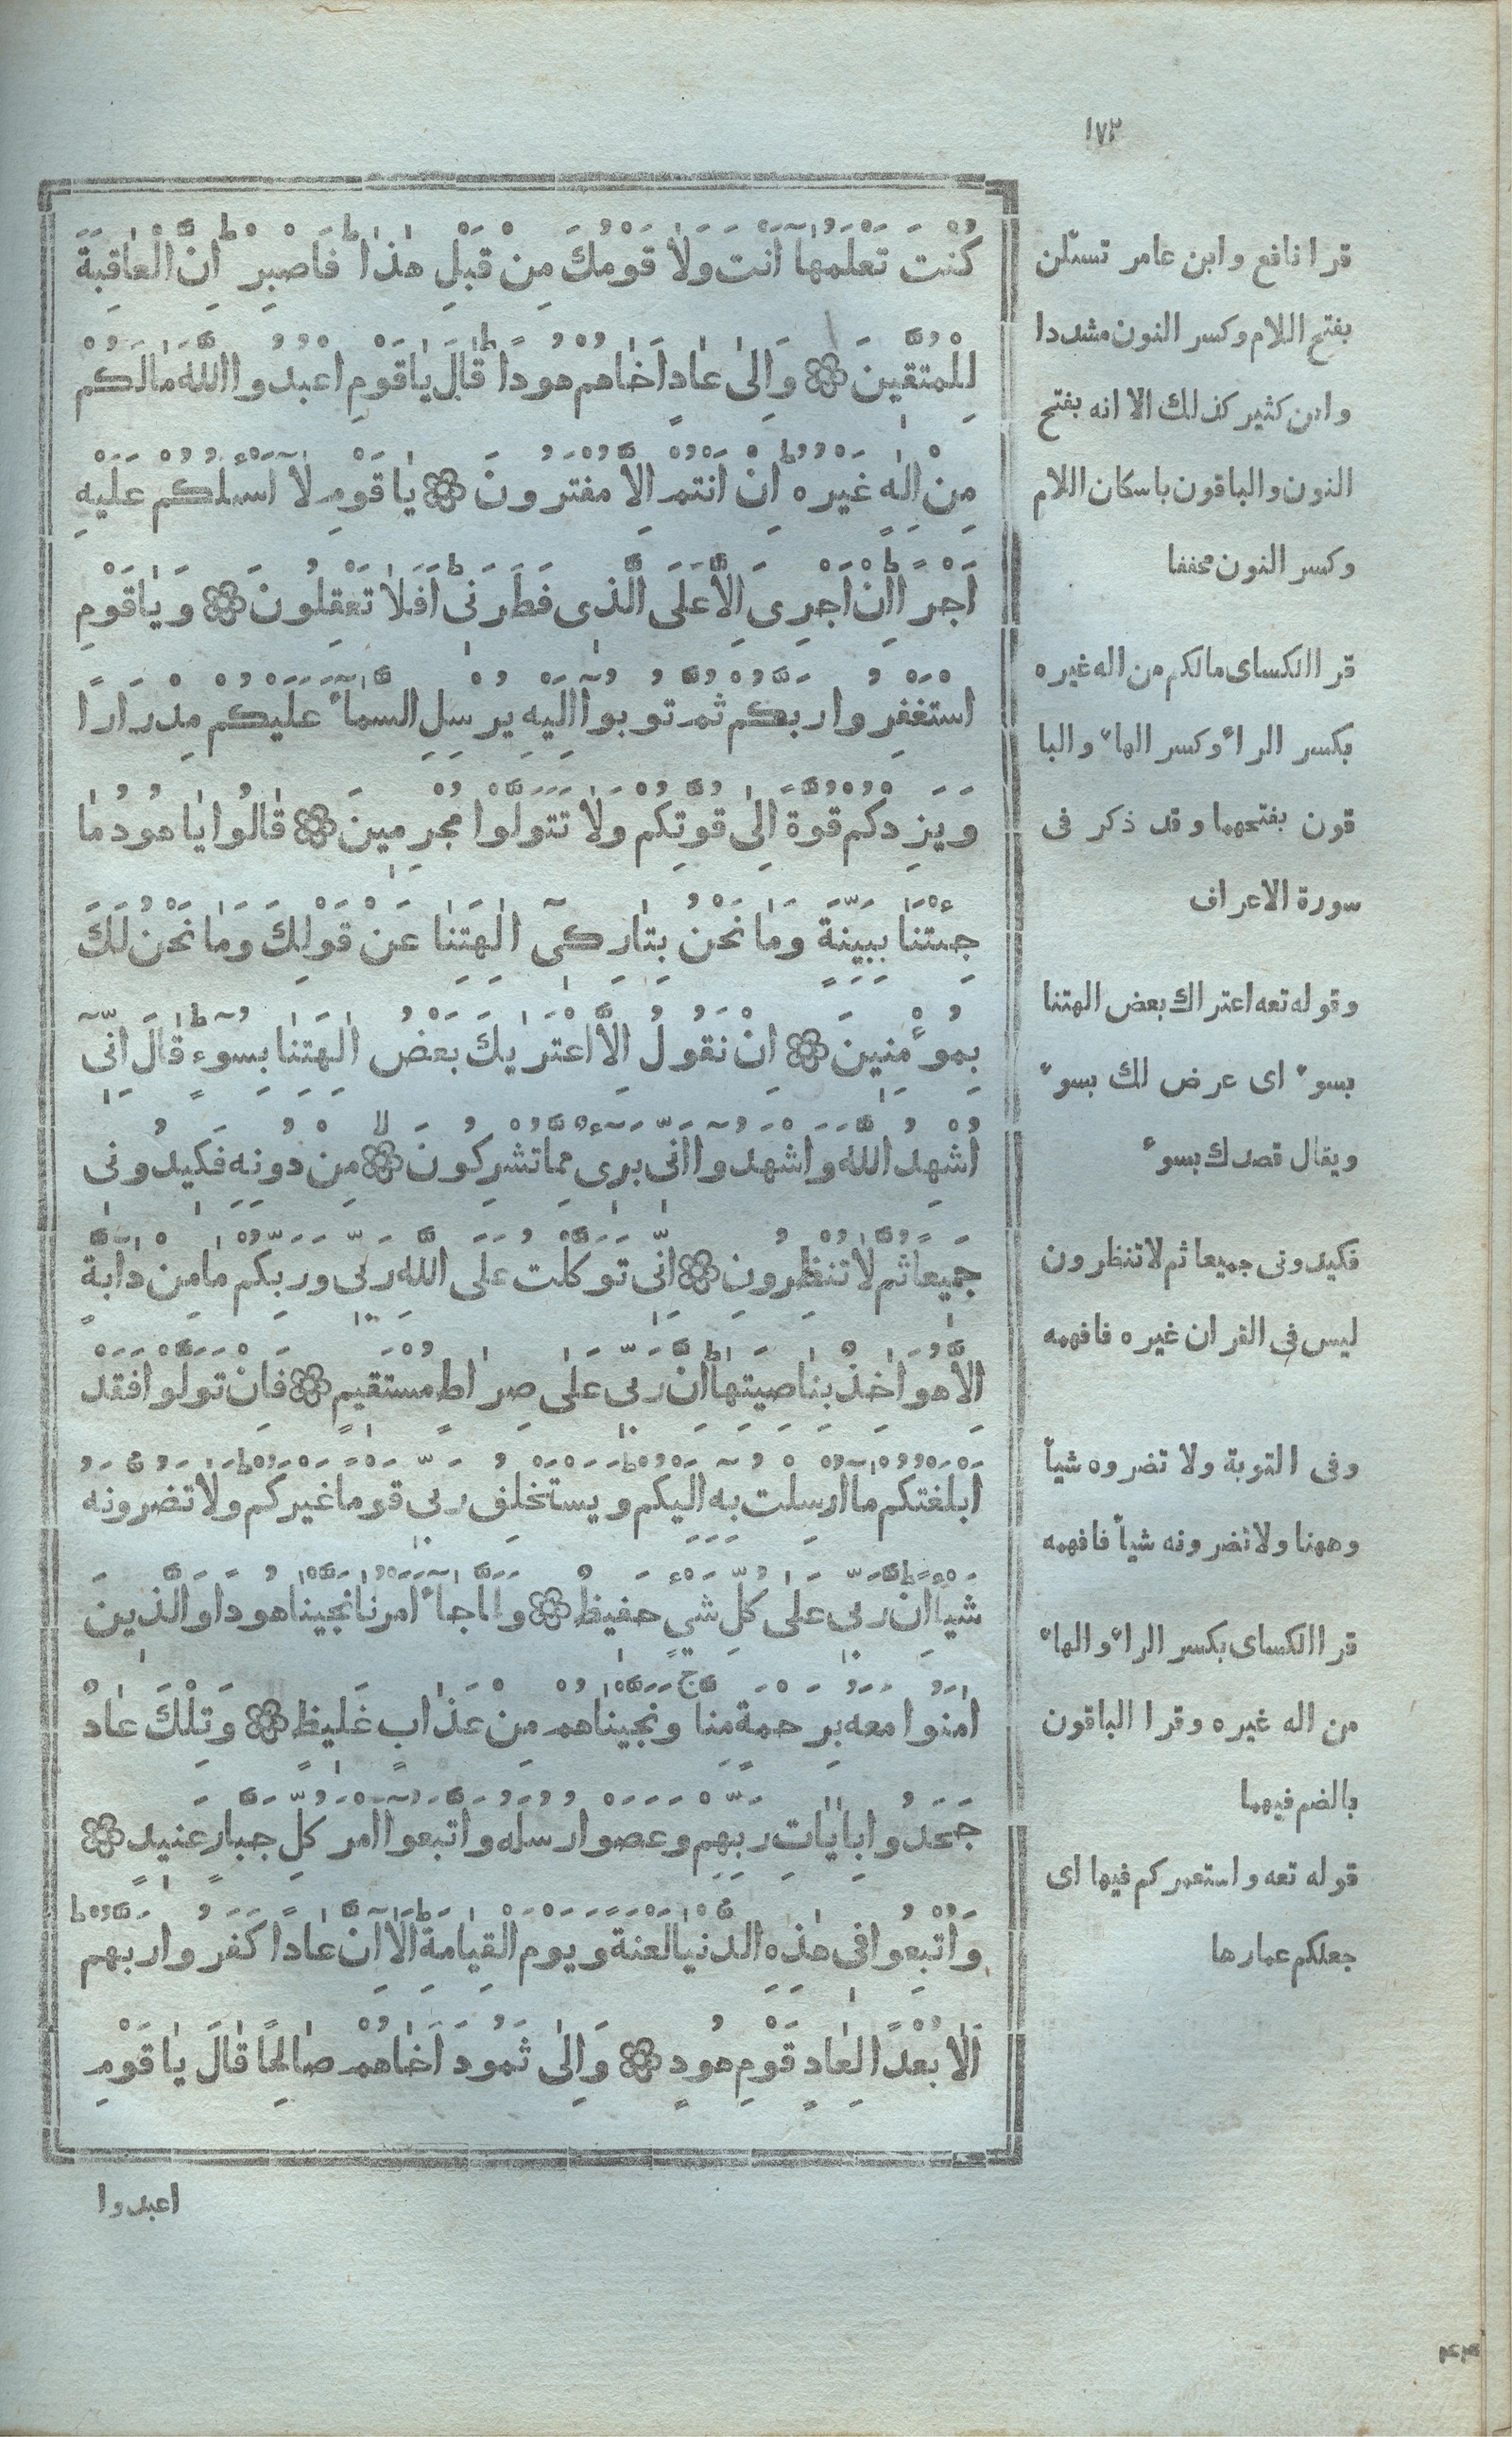 ١٧٢
كُنْتَ تَعْلَمُهَا أَنْتَ وَلَا قَوْمُكَ مِنْ قَبْلِ هٰذَا ط فَاصْبِرْ ط اِنَّ الْعَاقِبَةَ
لِلْمُتَّقِينَ ۞ وَاِلٰى عَادٍ اَخَاهُمْ هُودًا ط قَالَ يَاقَوْمِ اعْبُدُوا اللّٰهَ مَالَكُمْ
مِنْ اِلٰهٍ غَيْرُهُ ط اِنْ اَنْتُمْ اِلَّا مُفْتَرُونَ ۞ يَاقَوْمِ لَآ اَسْـَٔلُكُمْ عَلَيْهِ
اَجْرًا ط اِنْ اَجْرِىَ اِلَّا عَلَى الَّذِى فَطَرَنِى ط اَفَلَا تَعْقِلُونَ ۞ وَيَاقَوْمِ
اسْتَغْفِرُوا رَبَّكُمْ ثُمَّ تُوبُوآ اِلَيْهِ يُرْسِلِ السَّمَآءَ عَلَيْكُمْ مِدْرَارًا
وَيَزِدْكُمْ قُوَّةً اِلٰى قُوَّتِكُمْ وَلَا تَتَوَلَّوْا مُجْرِمِينَ ۞ قَالُوا يَاهُودُ مَا
جِئْتَنَا بِبَيِّنَةٍ وَمَا نَحْنُ بِتَارِكِىٓ اٰلِهَتِنَا عَنْ قَوْلِكَ وَمَا نَحْنُ لَكَ
بِمُؤْمِنِينَ ۞ اِنْ نَقُولُ اِلَّا اعْتَرٰيكَ بَعْضُ اٰلِهَتِنَا بِسُوٓءٍ ط قَالَ اِنِّىٓ
اُشْهِدُ اللّٰهَ وَاشْهَدُوآ اَنِّى بَرِىٓءٌ مِمَّا تُشْرِكُونَ ۞ لا مِنْ دُونِهِ فَكِيدُونِى
جَمِيعًا ثُمَّ لَا تُنْظِرُونِ ۞ اِنِّى تَوَكَّلْتُ عَلَى اللّٰهِ رَبِّى وَرَبِّكُمْ مَا مِنْ دَآبَّةٍ
اِلَّا هُوَ اٰخِذٌ بِنَاصِيَتِهَا ط اِنَّ رَبِّى عَلٰى صِرَاطٍ مُسْتَقِيمٍ ۞ فَاِنْ تَوَلَّوْا فَقَدْ
اَبْلَغْتُكُمْ مَآ اُرْسِلْتُ بِهِ اِلَيْكُمْ ط وَيَسْتَخْلِفُ رَبِّى قَوْمًا غَيْرَكُمْ ط وَلَا تَضُرُّونَهُ
شَيْئًا ط اِنَّ رَبِّى عَلٰى كُلِّ شَىْءٍ حَفِيظٌ ۞ وَلَمَّا جَآءَ اَمْرُنَا نَجَّيْنَا هُودًا وَالَّذِينَ
اٰمَنُوا مَعَهُ بِرَحْمَةٍ مِنَّا ج وَنَجَّيْنَاهُمْ مِنْ عَذَابٍ غَلِيظٍ ۞ وَتِلْكَ عَادٌ
جَحَدُوا بِاٰيَاتِ رَبِّهِمْ وَعَصَوْا رُسُلَهُ وَاتَّبَعُوآ اَمْرَ كُلِّ جَبَّارٍ عَنِيدٍ ۞
وَاُتْبِعُوا فِى هٰذِهِ الدُّنْيَا لَعْنَةً وَيَوْمَ الْقِيَامَةِ ط اَلَآ اِنَّ عَادًا كَفَرُوا رَبَّهُمْ ط
اَلَا بُعْدًا لِعَادٍ قَوْمِ هُودٍ ۞ وَاِلٰى ثَمُودَ اَخَاهُمْ صَالِحًا قَالَ يَاقَوْمِ
اعبدوا
قرا نافع وابن عامر تسئلن
بفتح اللام وكسر النون مشددا
وابن كثير كذلك الا انه بفتح
النون والباقون باسكان اللام
وكسر النون مخففا
قرا الكساى مالكم من اله غيره
بكسر الراء وكسر الهاء والبا
قون بفتحهما وقد ذكر فى
سورة الاعراف
وقوله تعه اعتراك بعض الهتنا
بسوء اى عرض لك بسوء
ويقال قصدك بسوء
فكيدونى جميعا ثم لا تنظرون
ليس فى القران غيره فافهمه
وفى التوبة ولا تضروه شيأ
وههنا ولا تضرونه شيأ فافهمه
قرا الكساى بكسر الراء والهاء
من اله غيره وقرا الباقون
بالضم فيهما
قوله تعه واستعمركم فيها اى
جعلكم عمارها